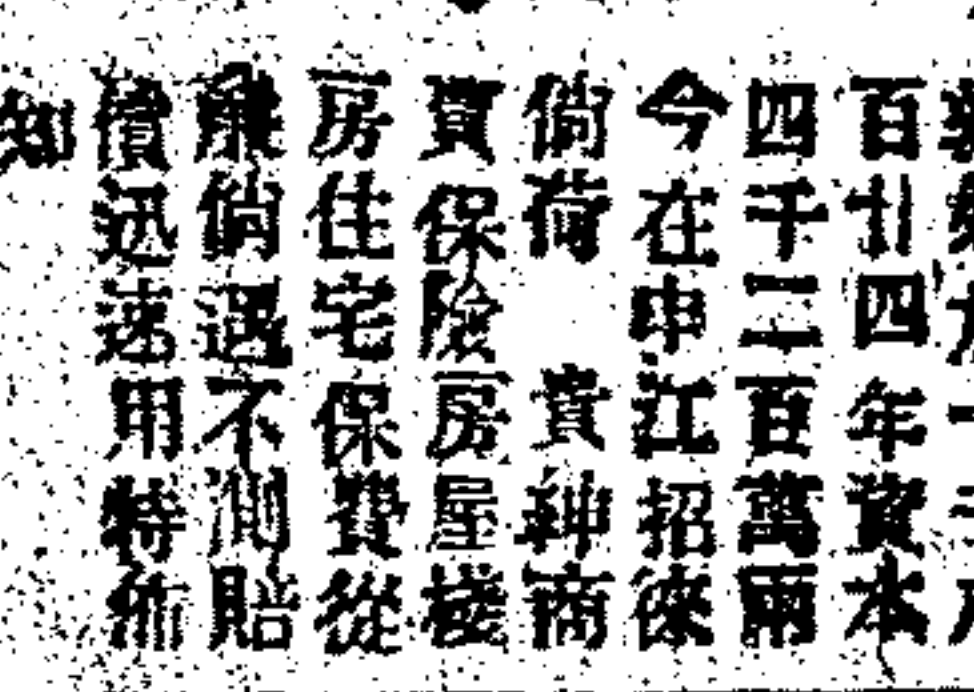 百廿四年資本
四千二百萬兩
今在申江招徠
倘荷　貴紳商
買保險房屋棧
房住宅保費從
廉倘遇不測賠
償迅速用特佈
知